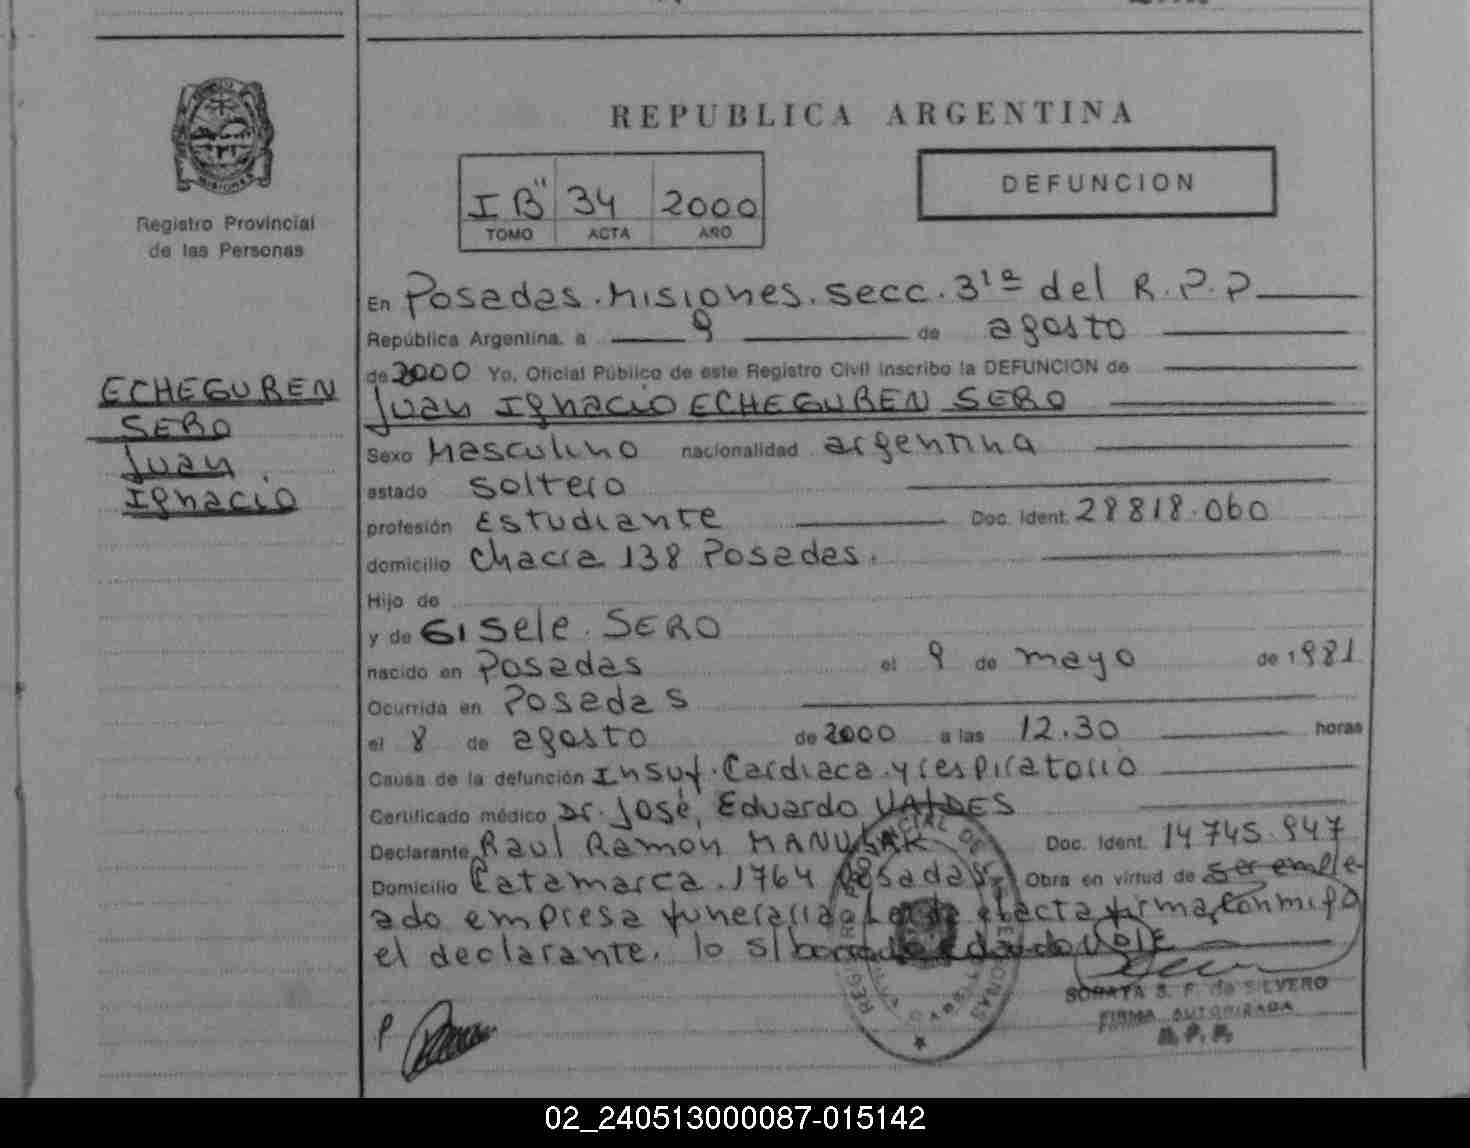 REPUBLICA ARGENTINA
MISIONES
Registro Provincial
de las Personas
IB" 34 2000
TOMO ACTA AÑO
DEFUNCION
ECHEGUREN
SERO
Juan
Ignacio
En Posadas. Misiones. Secc. 3ra del R.P.P
República Argentina, a 9 de agosto
de 2000 Yo, Oficial Público de este Registro Civil inscribo la DEFUNCION de
Juan Ignacio ECHEGUREN SERO
Sexo Masculino nacionalidad argentina
estado soltero
profesión Estudiante Doc. Ident. 28818.060
domicilio Chacra 138 Posadas.
Hijo de
y de Gisele. SERO
nacido en Posadas el 9 de mayo de 1981
Ocurrida en Posadas
el 8 de agosto de 2000 a las 12.30 horas
Causa de la defunción Insuf. Cardiaca y respiratorio
Certificado médico Dr. José, Eduardo VALDES
Declarante Raul Ramón Doc. Ident. 14745.947
Domicilio Catamarca. 1764 Posadas Obra en virtud de ser emple-
ado empresa funeraria firma conmigo
el declarante. lo s/borrado
SORAYA S. F. de SILVERO
FIRMA AUTORIZADA
R. P. P.
02_240513000087-015142